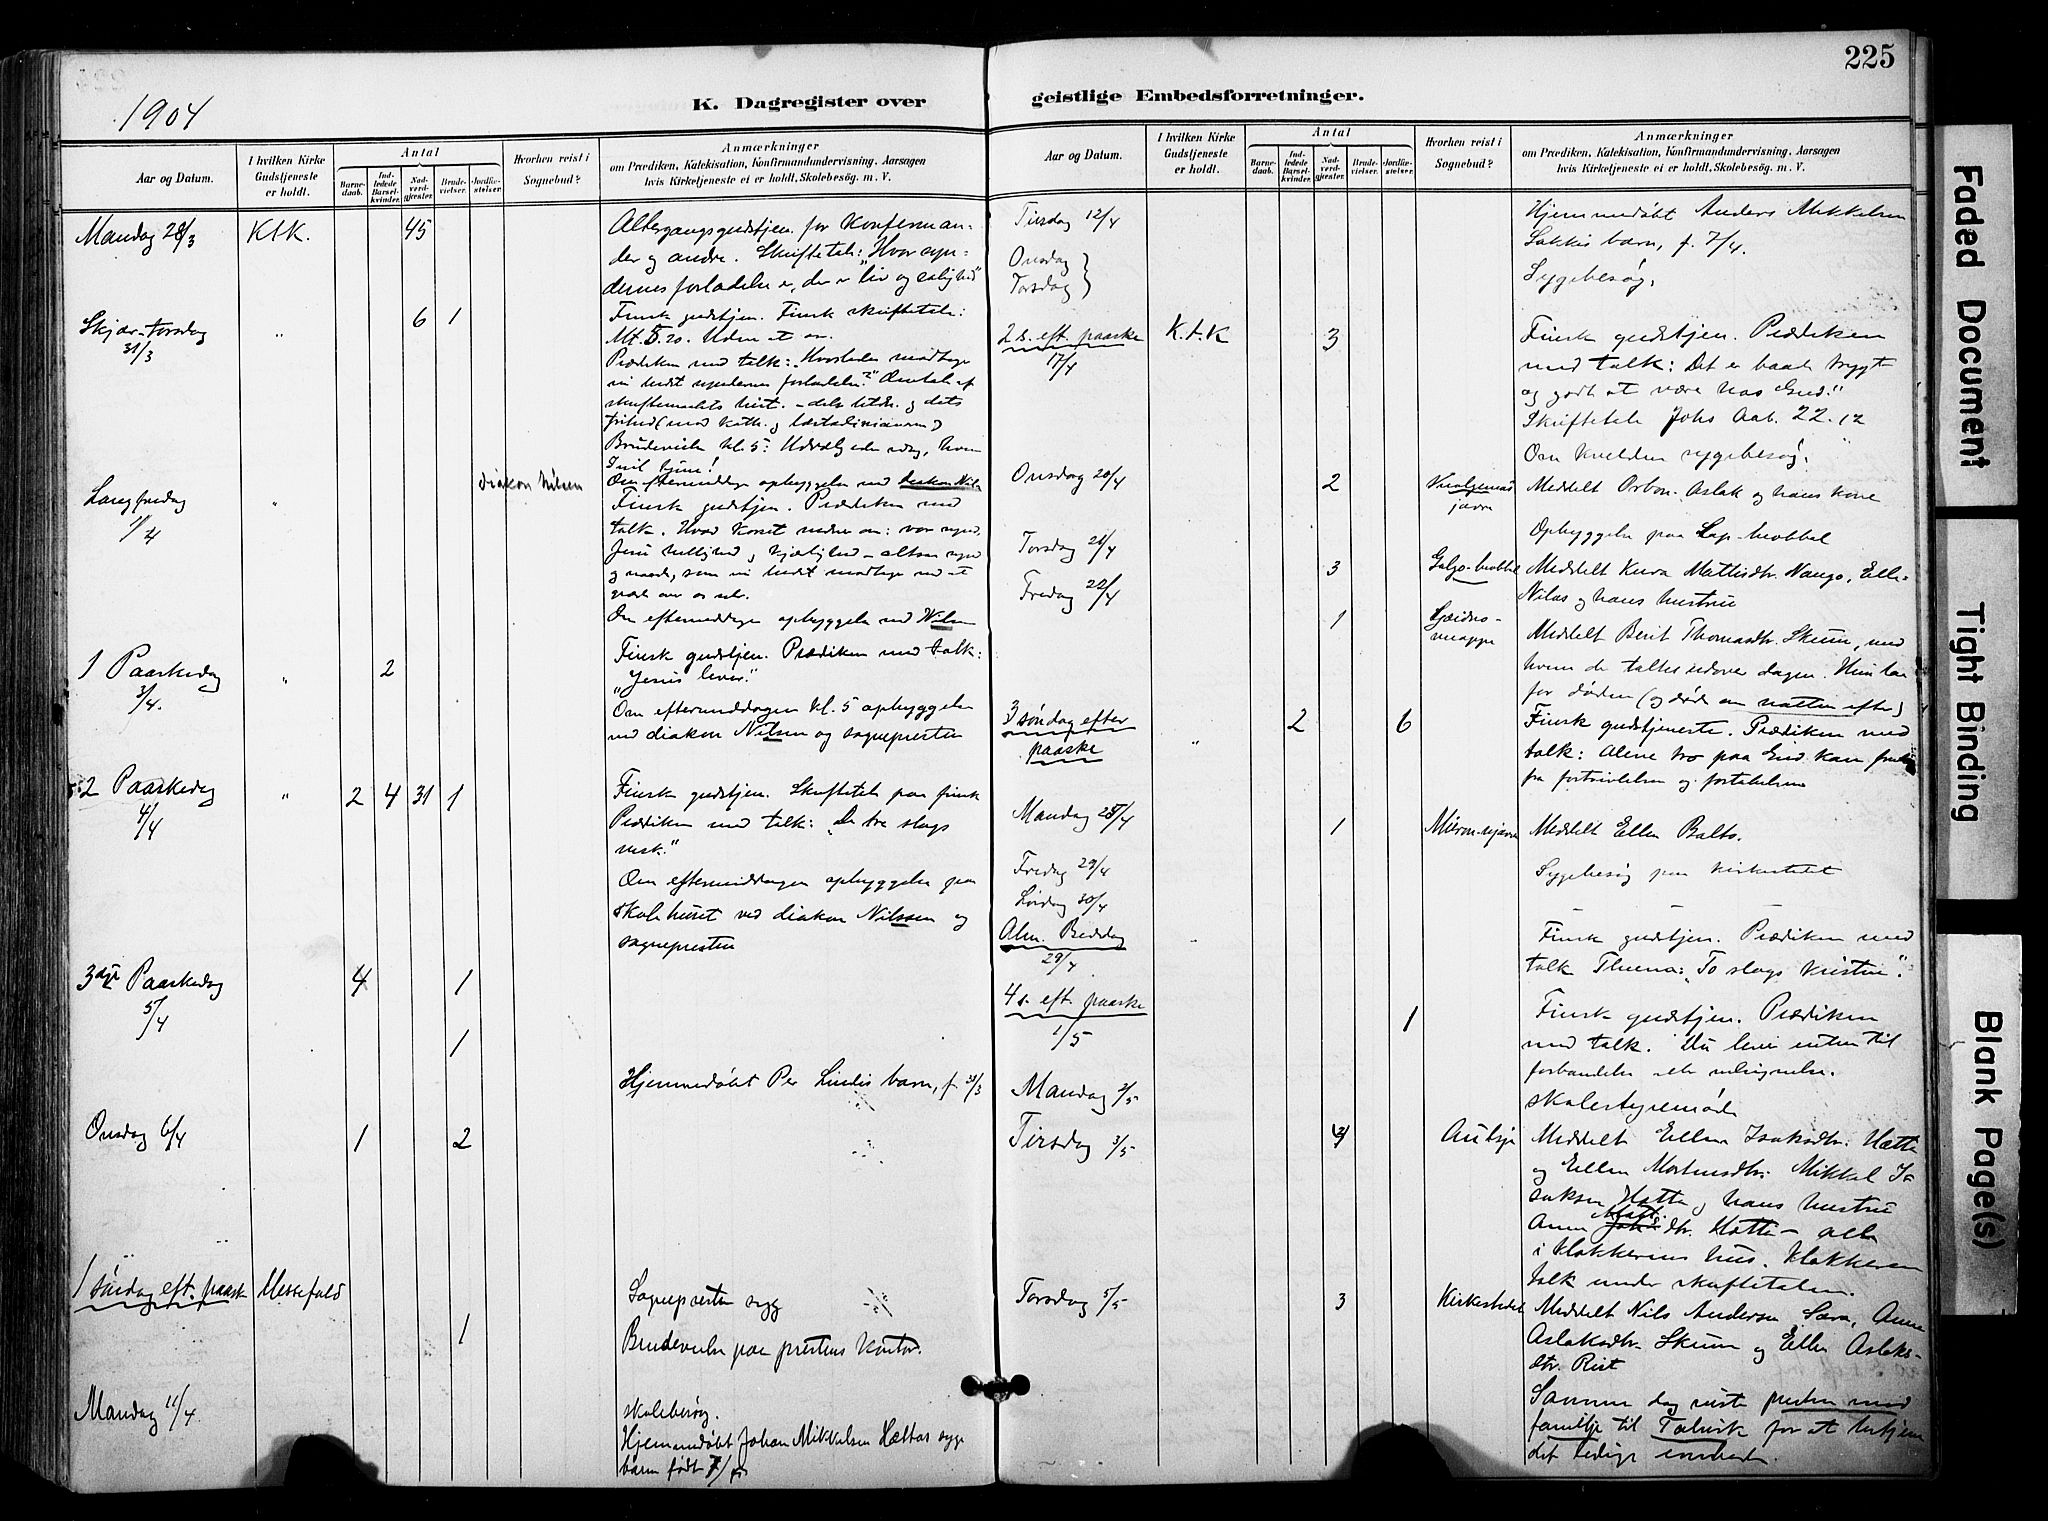 225
1904
K. Dagregister over
geistlige Embedsforretninger.
Aar og Datum.
I hvilken Kirke Gudstjeneste er holdt.
Antal
Barnedaab.
Indledede Barselkvinder.
Nadverdgjester.
Brudevielser.
Jordfæstelser.
Hvorhen reist i Sognebud?
Anmærkninger
om Prædiken, Katekisation, Konfirmandundervisning, Aarsagen
hvis Kirketjeneste ei er holdt, Skolebesøg. m. V.
Mandag 28/3 K t K. 45 Altergangsgudstjen. for Konferman-
der og andre. Skriftetale: "Hvor syn-
dernes forladelse er, der er liv og salighed"
Skjær-torsdag 31/3 " 6 1 Finsk gudstjen. Finsk skriftetale:
Mt. 5.20. Uden at
Prædiken med talk: "Hvorledes modtage
vi syndernes forladelse?" Omtale af
og dets
frihed (mod kath. og læstadianerne)
Brudevielse kl. 5: Udvælg eder idag, hvem
I vil tjene!
diakon Nilsen Om eftermiddag opbyggelse ved diakon Nils
Langfredag 1/4 " Finsk gudstjen. Prædiken med
talk. Hvad korset vidner om: vor synd,
Jesu hellighed og kjærlighed - altsaa synd
og naade, som vi
Om eftermiddagen opbyggelse ved Nilsen
1 Paaskedag 3/4. " 2 Finsk gudstjen. Prædiken med talk:
"Jesus lever."
Om eftermiddagen kl. 5 opbyggelse
ved diakon Nilsen og sognepresten
2 Paaskedag 4/4 " 2 4 31 1 Finsk gudstjen. Skriftetale paa finsk
Prædiken med talk: "De tre slags
Om eftermiddagen opbyggelse paa
skolehuset ved diakon Nilssen og
sognepresten
3dje Paaskedag 5/4 4 1
1
Hjemmedøbt Per Lindis barn, f. 31/3
Onsdag 6/4 1 2
1 søndag eft. paaske Messefald Sognepresten syg
1 Brudevielse paa prestens kontor.
Mandag 11/4 skolebesøg.
Hjemmedøbt Johan Mikkelsen Hættas syge
barn født
Aar og Datum.
I hvilken Kirke Gudstjeneste er holdt.
Antal
Barnedaab.
Indledede Barselkvinder.
Nadverdgjester.
Brudevielser.
Jordfæstelser.
Hvorhen reist i Sognebud?
Anmærkninger
om Prædiken, Katekisation, Konfirmandundervisning, Aarsagen
hvis Kirketjeneste ei er holdt, Skolebesøg. m. V.
Tirsdag 12/4 Hjemmedøbt Anders Mikkelsen
barn, f. 7/4.
Onsdag
Torsdag Sygebesøg.
2 s. eft. paaske 17/4 K. t. K 3 Finsk gudstjen. Prædiken
med talk: Det er baade trygt
og godt at være hos Gud."
Skriftetale Johs Aab. 22.12
Om kvelden sygebesøg.
Onsdag 20/4 2 Meddelt Aslak og hans kone
Torsdag 21/4 Opbyggelse paa Lap-
Fredag 22/4 3 Meddelt Mattisdtr. Nango, Elle
Nilas og hans hustru
1 Meddelt Berit Thomasdtr. Skum, med
hvem de taltes udover dagen. Hun laa
for døden (og døde om natten efter)
3 søndag efter paaske " 2 6 Finsk gudstjeneste. Prædiken med
talk: Alene tro paa Gud kan
fra fortvivlelsen og fortabelsen
Mandag 25/4 1 Meddelt Ellen Balto.
Fredag 29/4
Lørdag 30/4 Sygebesøg paa kirkestedet
Alm. Bededag 29/4 " Finsk gudstjen. Prædiken med
talk Thema: "To slags kristne".
4 s. eft. paaske 1/5 1 Finsk gudstjen. Prædiken
med talk. Du lever enten til
forbandelse eller velsignelse.
Mandag 2/5 skolestyremøde
Tirsdag 3/5 Autsje Meddelt Ellen Isaksdtr. Hætta
og Ellen Mortensdtr. Mikkel I-
saksen Hætta og hans hustru
Anna dtr. Hætta - alle
i klokkerens hus. Klokkeren
talk under skriftetalen.
Torsdag 5/5 3 Kirkestedet Meddelt Nils Andersen Sara, Anne
Aslaksdtr. Skum og Ellen Aslaks-
dtr. Rist
Samme dag reiste presten med
familje til Talvik for at betjene
det ledige embede.
Faded Document
Tight Binding
Blank Page(s)